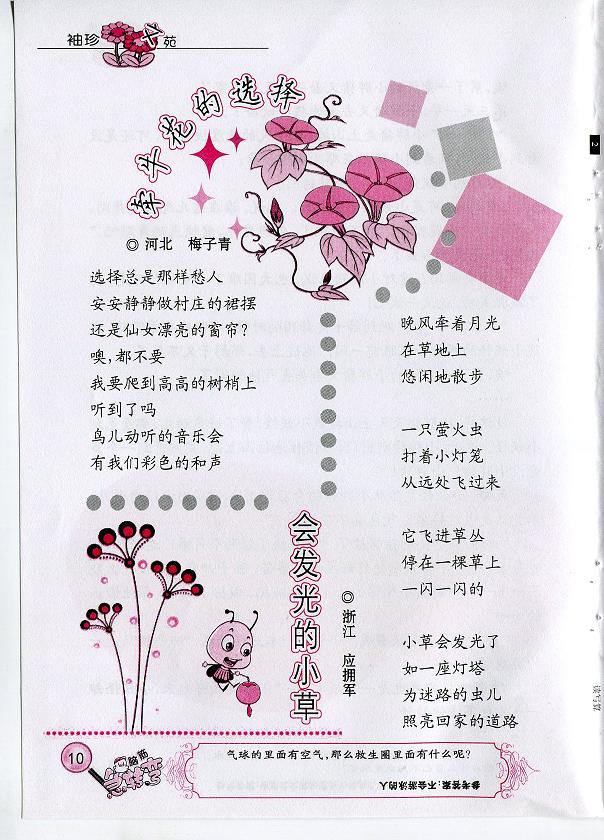 袖珍
苑
牵牛花的选择
◎ 河北 梅子青
选择总是那样愁人
安安静静做村庄的裙摆
还是仙女漂亮的窗帘?
噢,都不要
我要爬到高高的树梢上
听到了吗
鸟儿动听的音乐会
有我们彩色的和声
会发光的小草
◎浙江 应拥军
晚风牵着月光
在草地上
悠闲地散步
一只萤火虫
打着小灯笼
从远处飞过来
它飞进草丛
停在一棵草上
一闪一闪的
小草会发光了
如一座灯塔
为迷路的虫儿
照亮回家的道路
2
读写算
10
脑筋
急转弯
气球的里面有空气,那么救生圈里面有什么呢?
参考答案:不会游泳的人